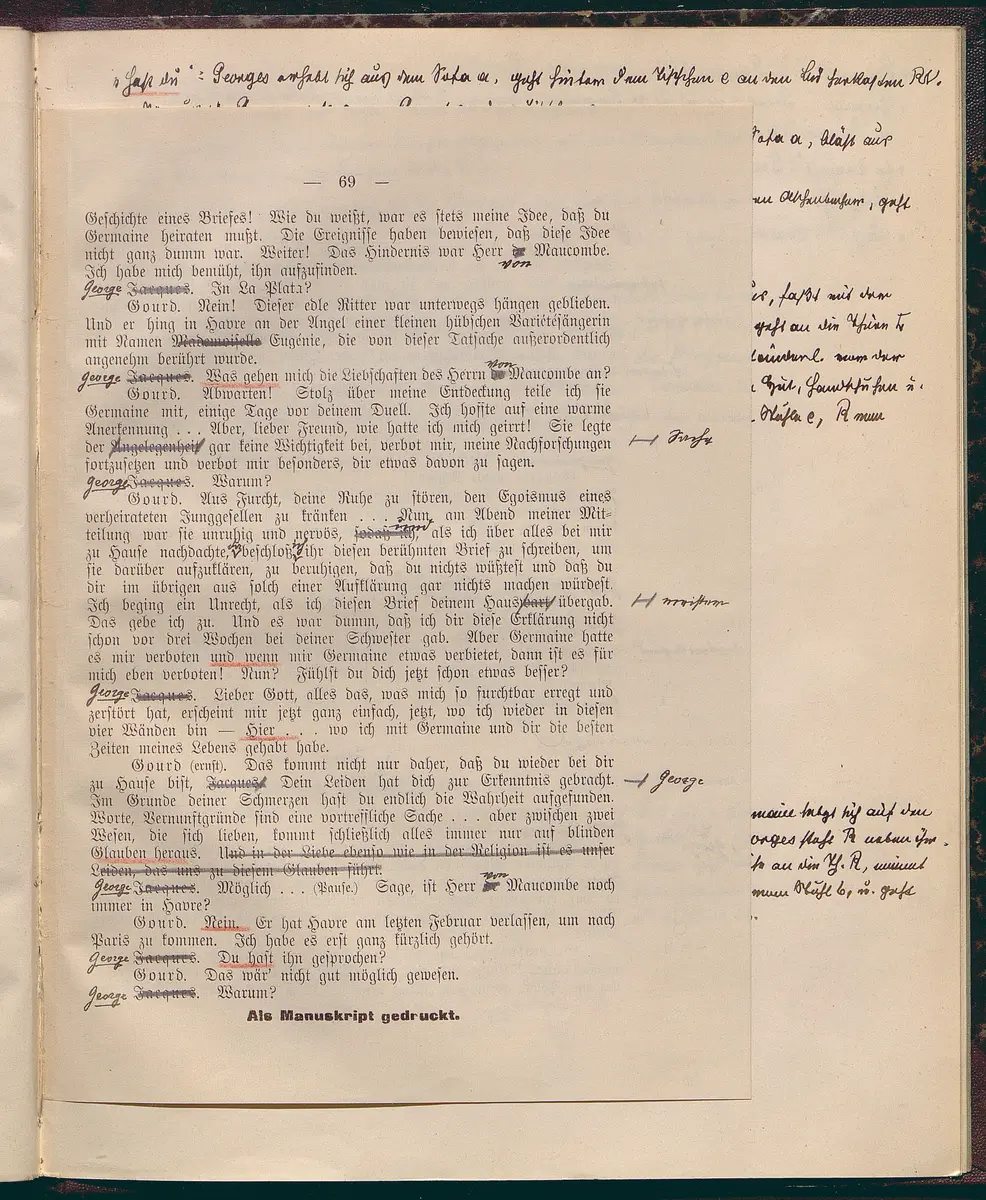 "Hast du": Georges erhebt sich aus dem Sofa a, geht hinter dem Tischchen c an den
Sofa a, bläst aus
Aschenbecher, geht
faßt mit der
geht an die Thüre
von der
Hut, Handschuhen u.
Stuhle c, R
— 69 —
Geschichte eines Briefes! Wie du weißt, war es stets meine Idee, daß du
Germaine heiraten mußt. Die Ereignisse haben bewiesen, daß diese Idee
nicht ganz dumm war. Weiter! Das Hindernis war Herr de Maucombe.
von
Ich habe mich bemüht, ihn aufzufinden.
George Jacques. In La Plata?
Gourd. Nein! Dieser edle Ritter war unterwegs hängen geblieben.
Und er hing in Havre an der Angel einer kleinen hübschen Variétésängerin
mit Namen Mademoiselle Eugénie, die von dieser Tatsache außerordentlich
angenehm berührt wurde.
von
George Jacques. Was gehen mich die Liebschaften des Herrn de Maucombe an?
Gourd. Abwarten! Stolz über meine Entdeckung teile ich sie
Germaine mit, einige Tage vor deinem Duell. Ich hoffte auf eine warme
Anerkennung . . . Aber, lieber Freund, wie hatte ich mich geirrt! Sie legte
der Angelegenheit gar keine Wichtigkeit bei, verbot mir, meine Nachforschungen
Sache
fortzusetzen und verbot mir besonders, dir etwas davon zu sagen.
George Jacques. Warum?
Gourd. Aus Furcht, deine Ruhe zu stören, den Egoismus eines
verheirateten Junggesellen zu kränken . . . Nun, am Abend meiner Mit-
und
teilung war sie unruhig und nervös, sodaß ich, als ich über alles bei mir
zu Hause nachdachte, beschloß, ihr diesen berühmten Brief zu schreiben, um
sie darüber aufzuklären, zu beruhigen, daß du nichts wüßtest und daß du
dir im übrigen aus solch einer Aufklärung gar nichts machen würdest.
Ich beging ein Unrecht, als ich diesen Brief deinem Hauswart übergab.
meister
Das gebe ich zu. Und es war dumm, daß ich dir diese Erklärung nicht
schon vor drei Wochen bei deiner Schwester gab. Aber Germaine hatte
es mir verboten und wenn mir Germaine etwas verbietet, dann ist es für
mich eben verboten! Nun? Fühlst du dich jetzt schon etwas besser?
George Jacques. Lieber Gott, alles das, was mich so furchtbar erregt und
zerstört hat, erscheint mir jetzt ganz einfach, jetzt, wo ich wieder in diesen
vier Wänden bin — Hier . . . wo ich mit Germaine und dir die besten
Zeiten meines Lebens gehabt habe.
Gourd (ernst). Das kommt nicht nur daher, daß du wieder bei dir
zu Hause bist, Jacques! Dein Leiden hat dich zur Erkenntnis gebracht.
George
Im Grunde deiner Schmerzen hast du endlich die Wahrheit aufgefunden.
Worte, Vernunftgründe sind eine vortreffliche Sache . . . aber zwischen zwei
Wesen, die sich lieben, kommt schließlich alles immer nur auf blinden
Glauben heraus. Und in der Liebe ebenso wie in der Religion ist es unser
Leiden, das uns zu diesem Glauben führt.
von
George Jacques. Möglich . . . (Pause.) Sage, ist Herr de Maucombe noch
immer in Havre?
Gourd. Nein. Er hat Havre am letzten Februar verlassen, um nach
Paris zu kommen. Ich habe es erst ganz kürzlich gehört.
George Jacques. Du hast ihn gesprochen?
Gourd. Das wär' nicht gut möglich gewesen.
George Jacques. Warum?
Als Manuskript gedruckt.
setzt sich auf den
steht R neben ihr.
an die Th. R, nimmt
Stuhl b, u. geht